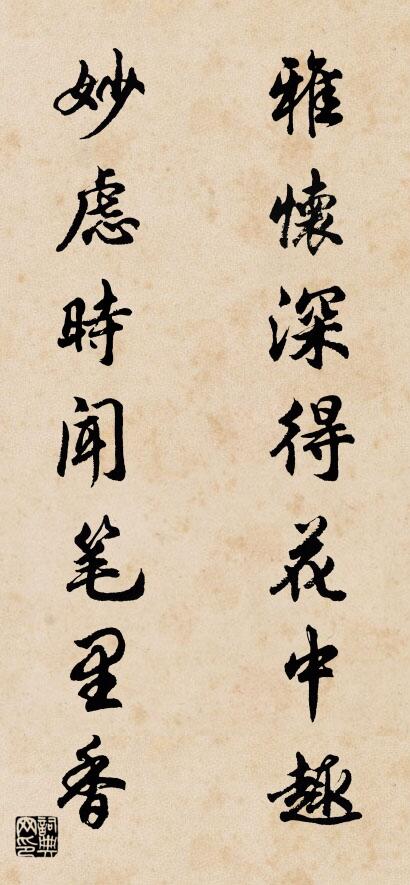 雅懷深得花中趣
妙慮時聞笔里香
詞典
网印